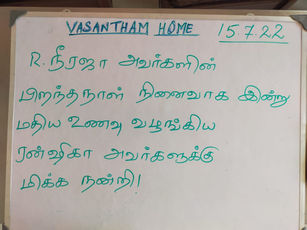 VASANTHAM HOME 15.7.22
R. நீரஜா அவர்களின்
பிறந்தநாள் நினைவாக இன்று
மதிய உணவு வழங்கிய
ரன்ஷிகா அவர்களுக்கு
மிக்க நன்றி!